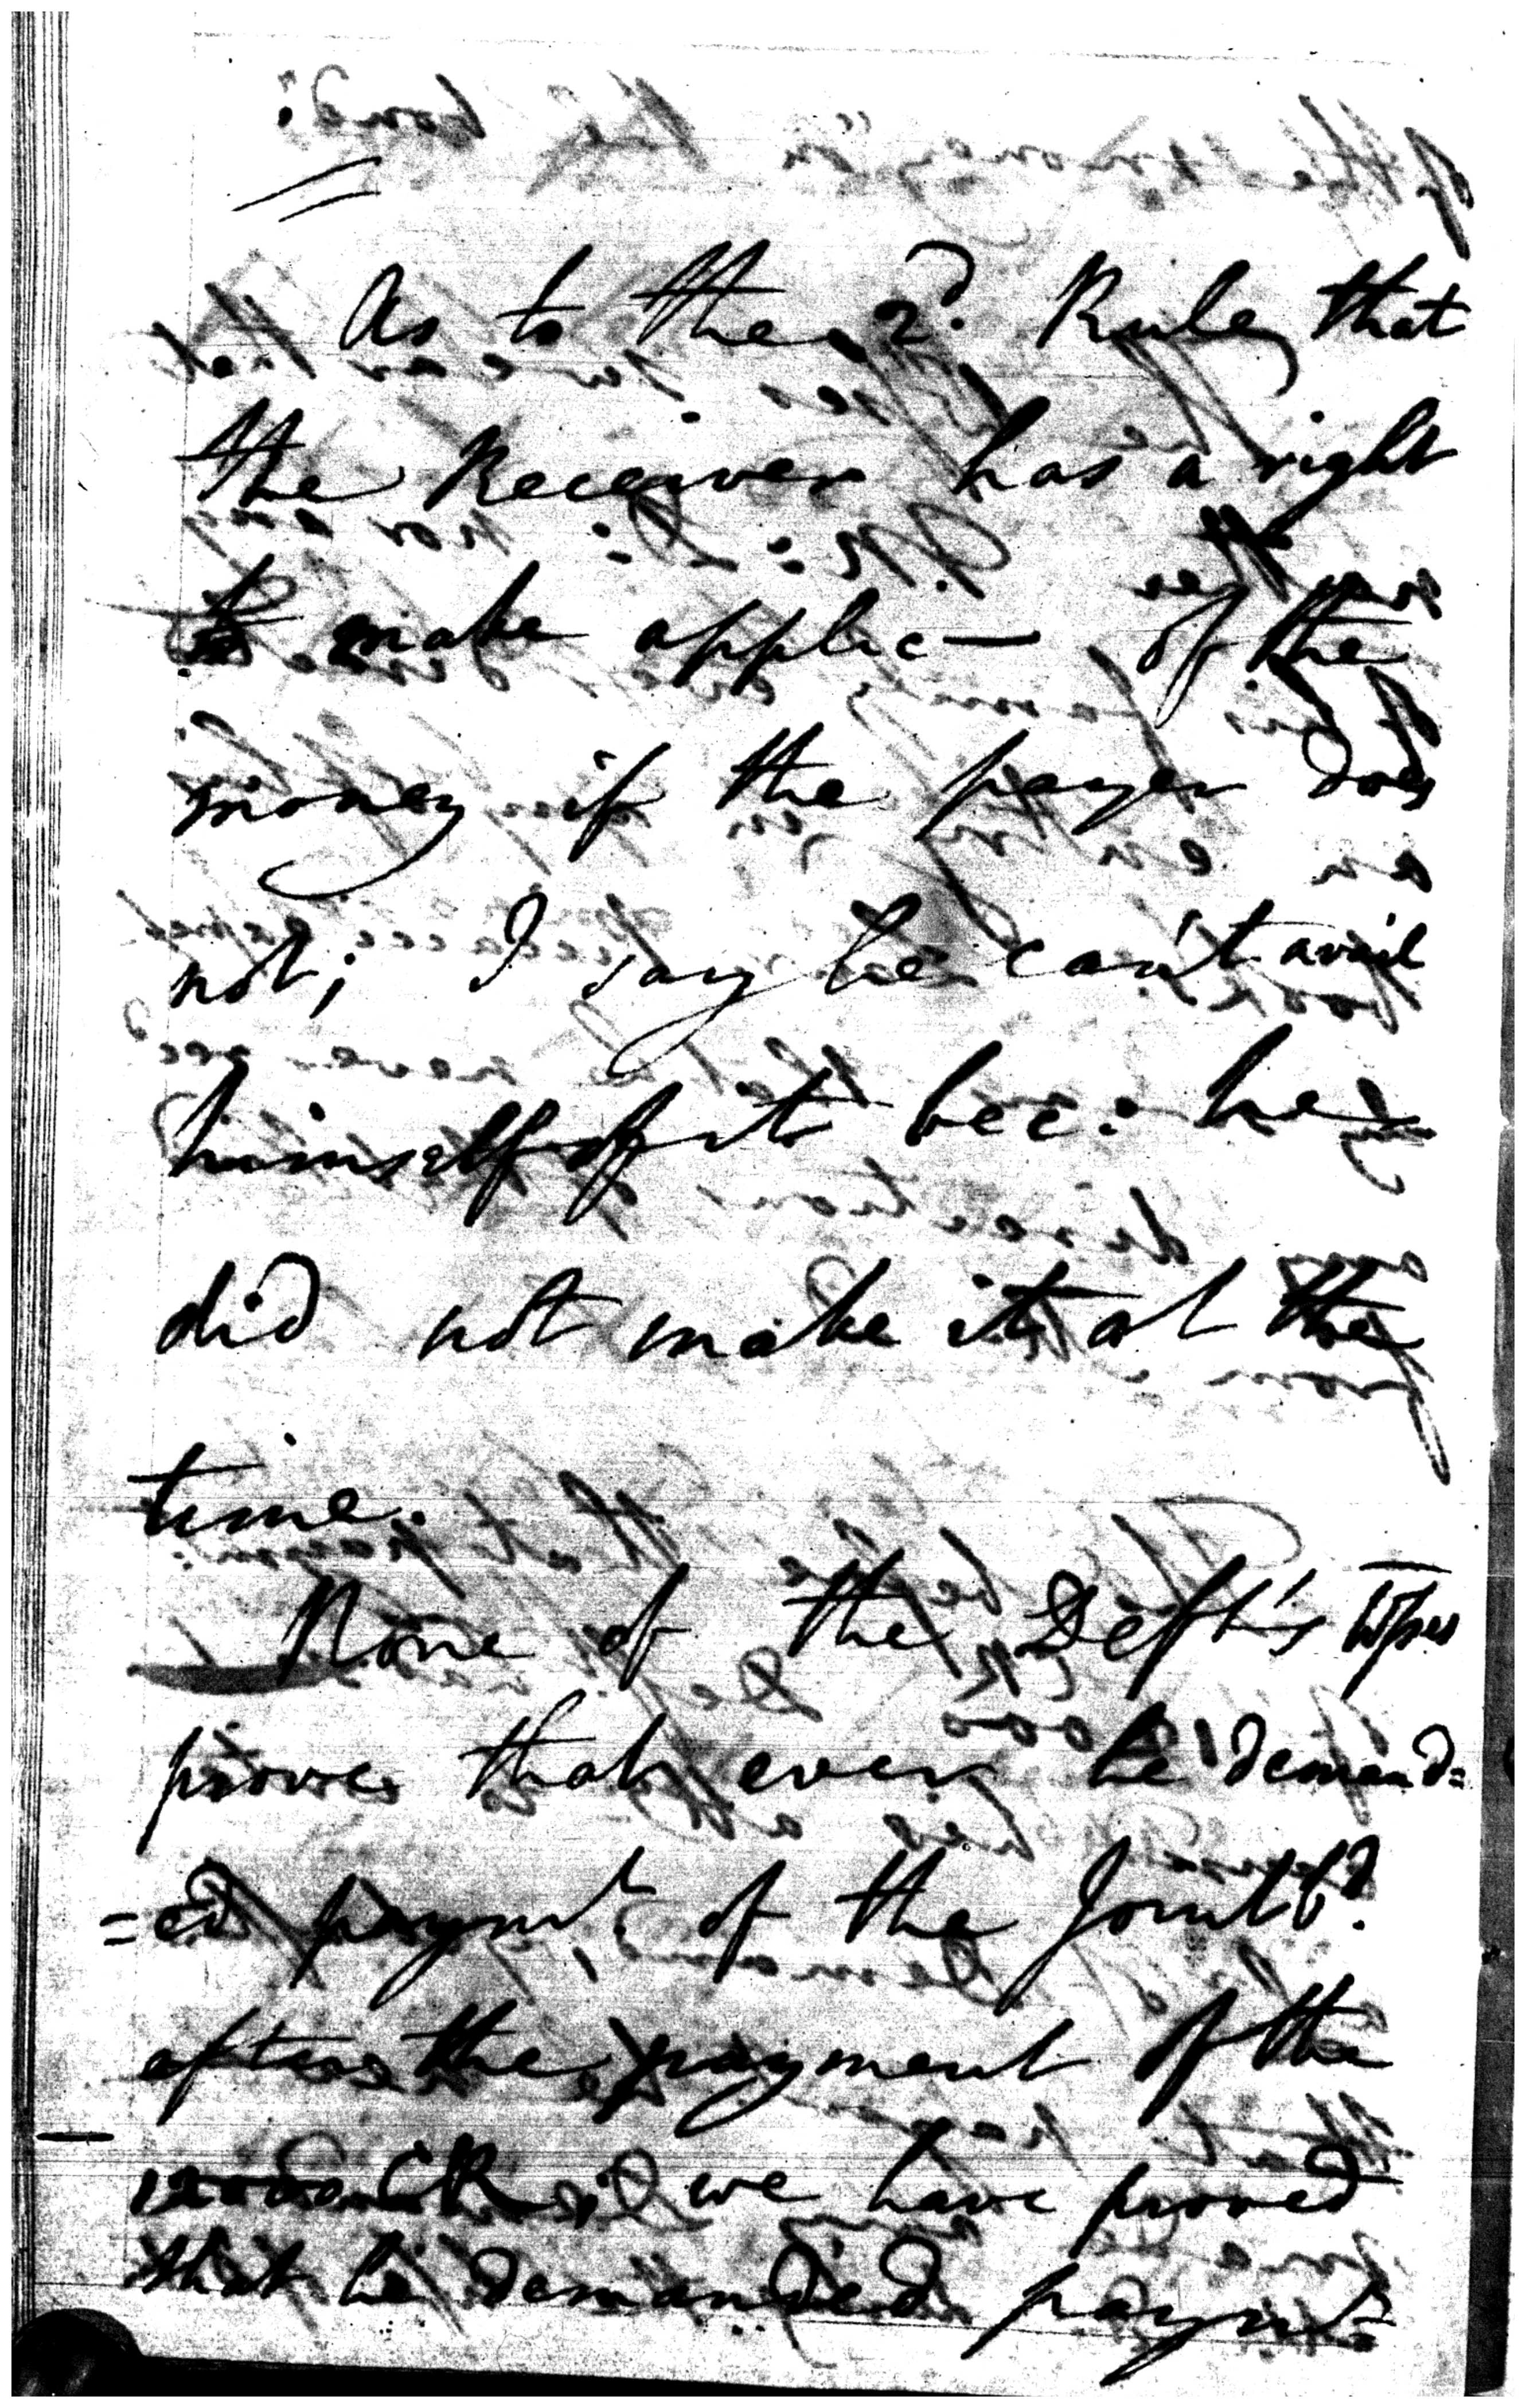 As to the 2d. Rule, that
the Receiver has a right
to make applic— of the
money if the payer does
not; I say he can't avail
himself of it bec: he
did not make it at the
time.
None of the Deft's Wses
prove that ever he demand=
=ed paymt. of the Joint bd.
after the payment of the
12000 CRs; we have proved
that he demanded paymt